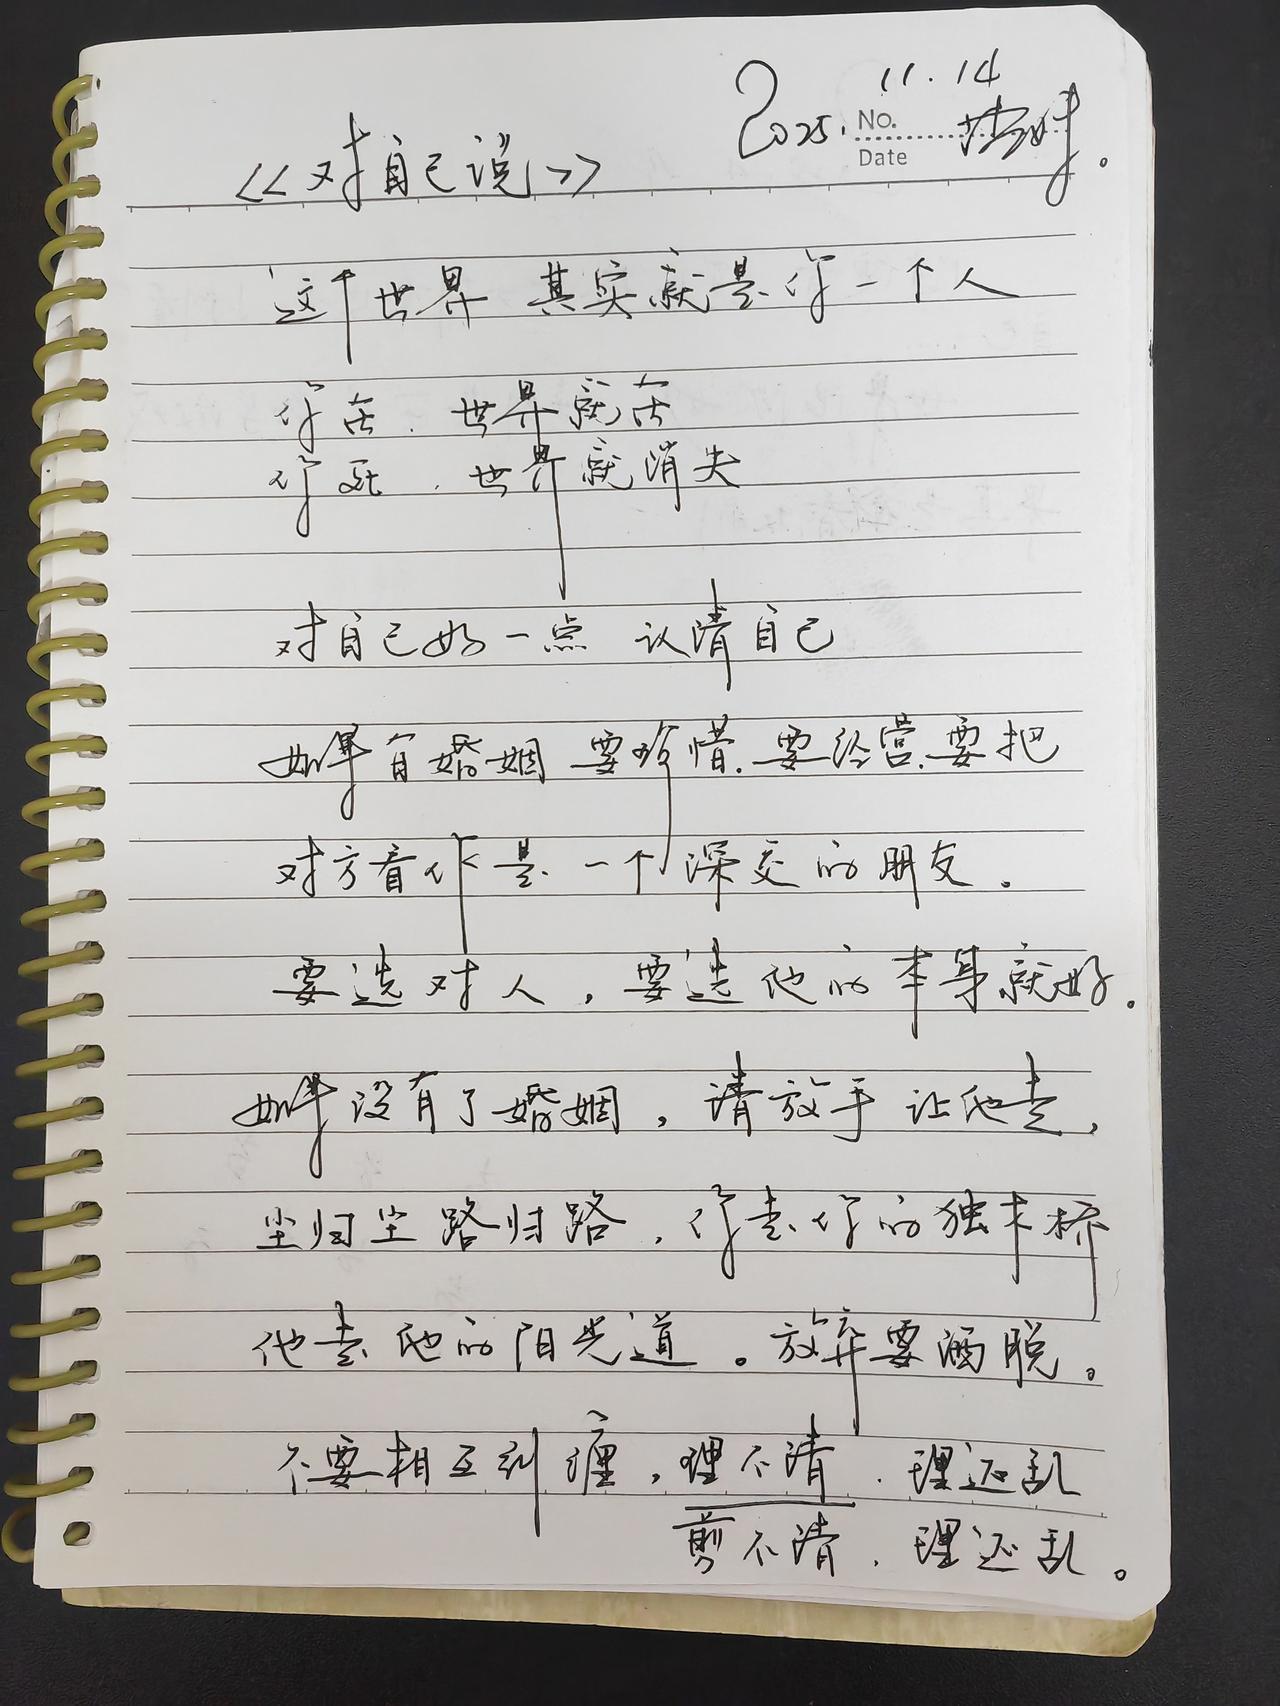 2025.11.14
No.
Date
《对自己说》
这个世界 其实就是你一个人
你在.世界就在
你死.世界就消失
对自己好一点 认清自己
如果有婚姻 要珍惜.要经营.要把
对方看作是一个深交的朋友.
要选对人,要选他的本身就好.
如果没有了婚姻,请放手让他走,
尘归尘路归路,你走你的独木桥
他走他的阳光道。放弃要洒脱。
不要相互纠缠,理不清.理还乱
剪不清.理还乱。